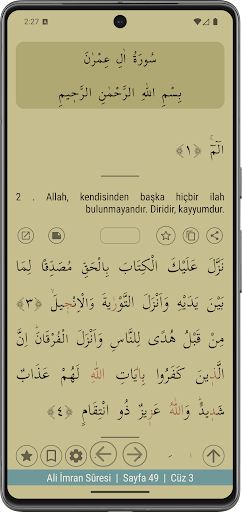 2:27
سُورَةُ اٰلِ عِمْرٰنَ
بِسْمِ اللهِ الرَّحْمٰنِ الرَّحٖيمِ
الٓمٓۚ ﴿١﴾
2 . Allah, kendisinden başka hiçbir ilah
bulunmayandır. Diridir, kayyumdur.
نَزَّلَ عَلَيْكَ الْكِتَابَ بِالْحَقِّ مُصَدِّقًا لِمَا
بَيْنَ يَدَيْهِ وَاَنْزَلَ التَّوْرٰيةَ وَالْاِنْجٖيلَۙ ﴿٣﴾
مِنْ قَبْلُ هُدًى لِلنَّاسِ وَاَنْزَلَ الْفُرْقَانَؕ اِنَّ
الَّذٖينَ كَفَرُوا بِاٰيَاتِ اللهِ لَهُمْ عَذَابٌ
شَدٖيدٌؕ وَاللهُ عَزٖيزٌ ذُو انْتِقَامٍ ﴿٤﴾
Ali İmran Sûresi | Sayfa 49 | Cüz 3